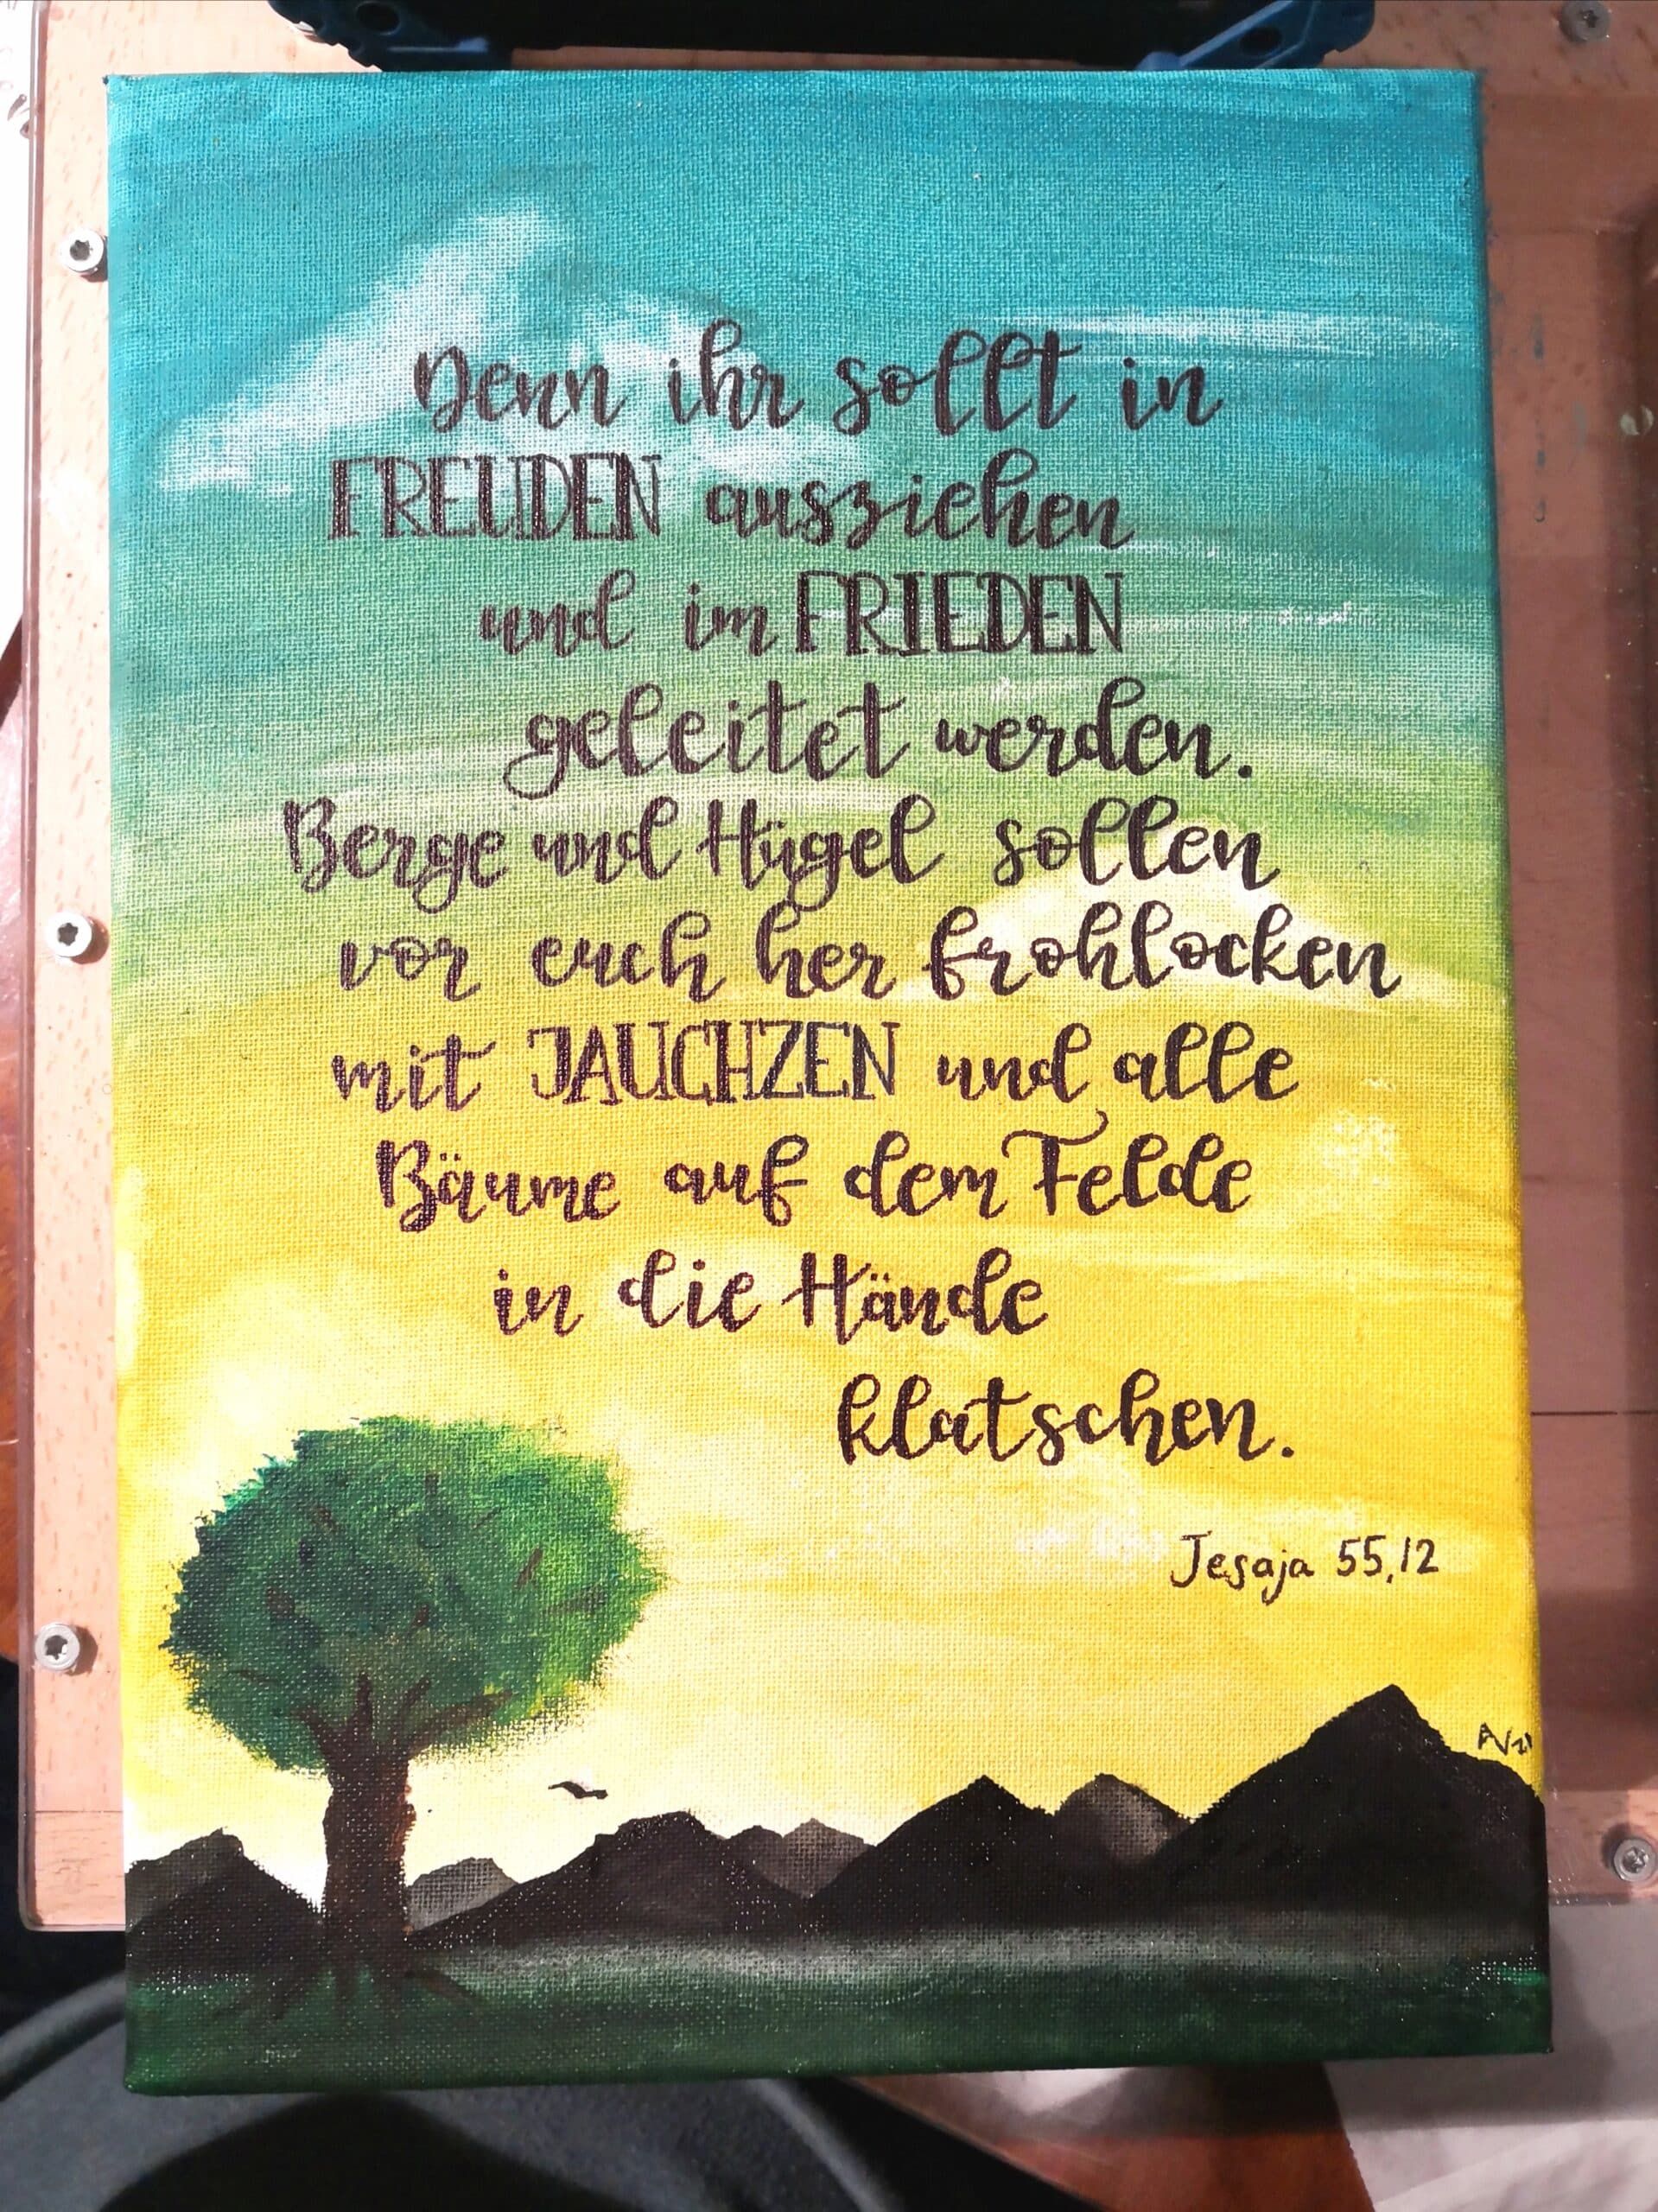 Denn ihr sollt in
FREUDEN ausziehen
und im FRIEDEN
geleitet werden.
Berge und Hügel sollen
vor euch her frohlocken
mit JAUCHZEN und alle
Bäume auf dem Felde
in die Hände
klatschen.
Jesaja 55,12